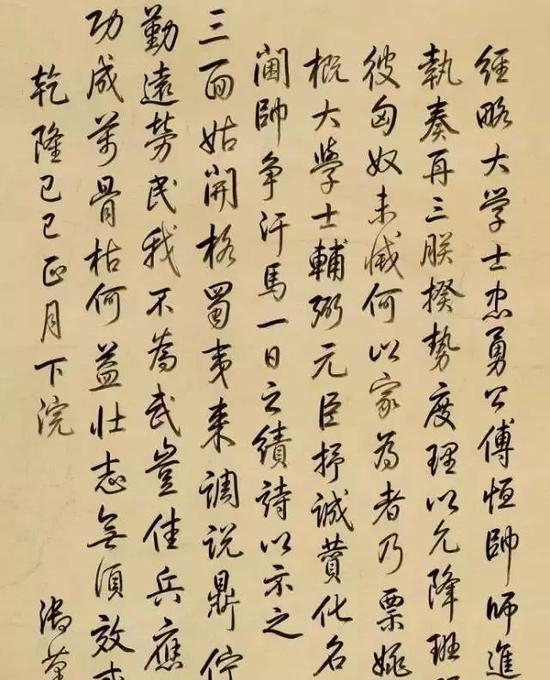 經略大學士忠勇公傅恒帥師進
執奏再三朕揆勢度理以允降班
彼匈奴未滅何以家為者乃票姚
概大學士輔弼元臣抒誠贊化名
閫帥爭汗馬一日之績詩以示之
三面姑開格蜀夷來調說鼎佇
勤遠勞民我不為武豈佳兵應
功成萬骨枯何益壯志無須效
乾隆己巳正月下浣
御筆